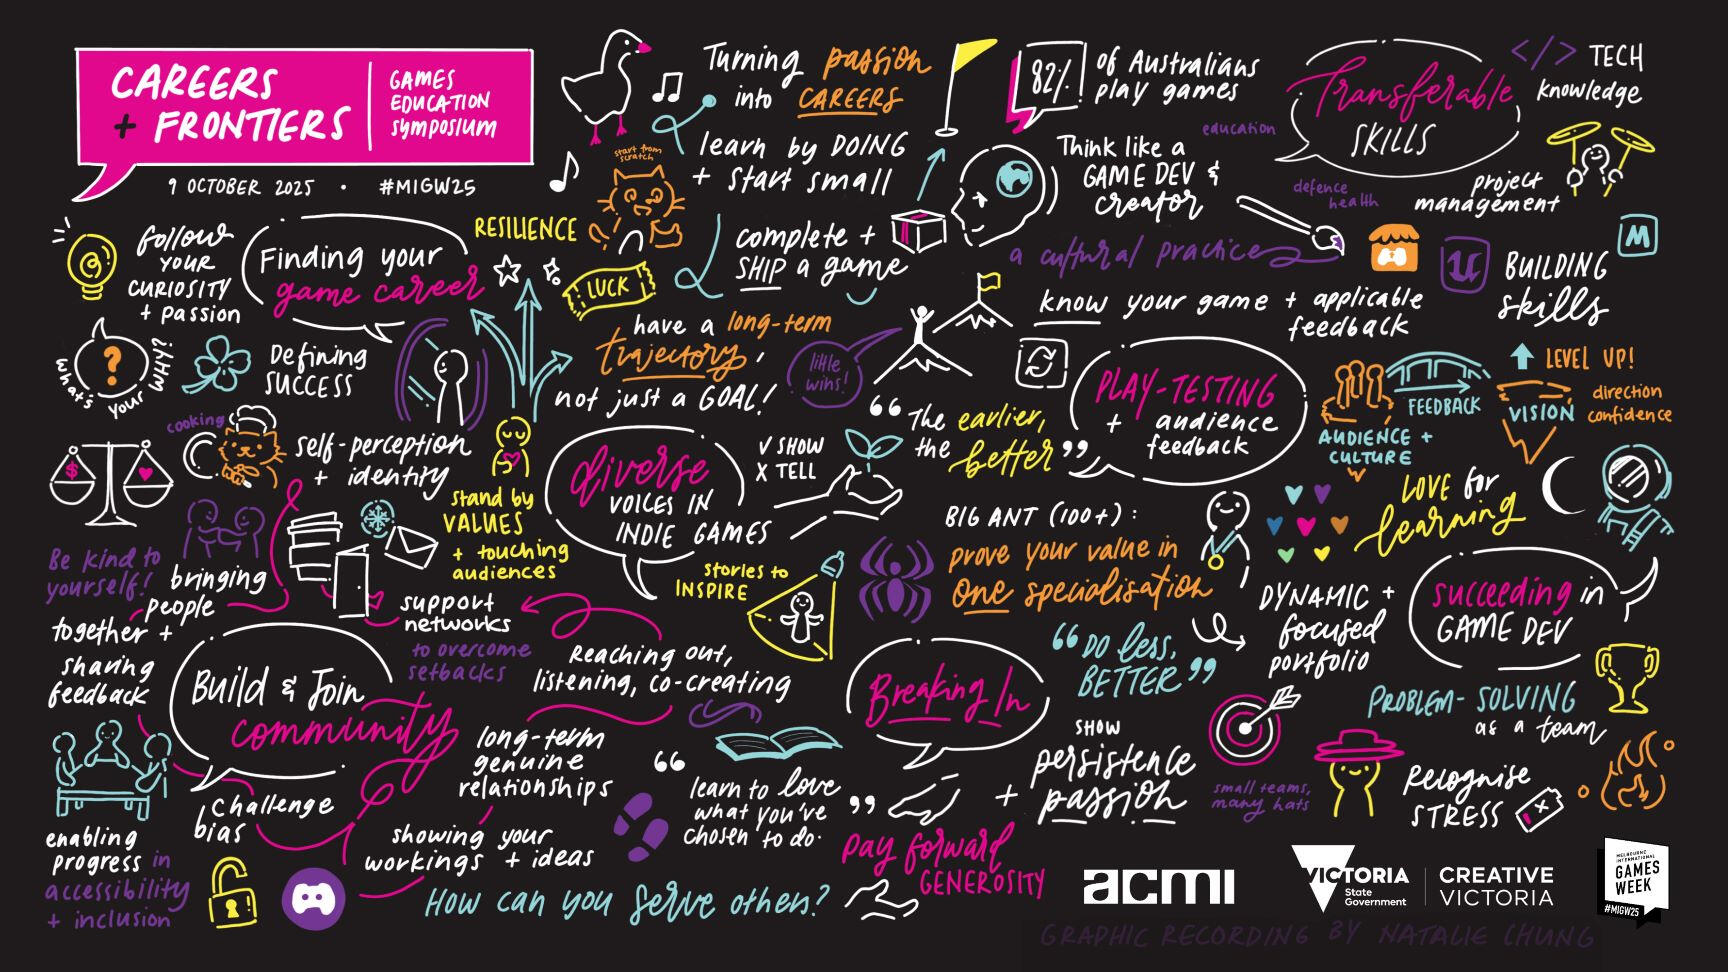 CAREERS
+ FRONTIERS
GAMES
EDUCATION
SYMPOSIUM
9 OCTOBER 2025 • #MIGW25
follow
YOUR
CURIOSITY
+ passion
Finding your
game career
RESILIENCE
start from
scratch
LUCK
what's your WHY?
?
Defining
SUCCESS
cooking
self-perception
+ identity
$
stand by
VALUES
+ touching
audiences
Turning passion
into CAREERS
learn by DOING
+ start small
complete +
SHIP a game
have a long-term
trajectory,
not just a GOAL!
little
wins!
82%
of Australians
play games
Think like a
GAME DEV &
creator
a cultural practice
education
Transferable
SKILLS
</> TECH
knowledge
defence
health
project
management
BUILDING
skills
M
know your game + applicable
feedback
PLAY-TESTING
+ audience
feedback
“The earlier,
the better”
AUDIENCE +
CULTURE
FEEDBACK
LEVEL UP!
VISION
direction
confidence
LOVE for
learning
diverse
VOICES IN
INDIE GAMES
✓ SHOW
X TELL
stories to
INSPIRE
BIG ANT (100+):
prove your value in
one specialisation
“DO less,
BETTER”
DYNAMIC +
focused
portfolio
succeeding in
GAME DEV
PROBLEM-SOLVING
as a team
small teams,
many hats
Recognise
STRESS
Breaking In
SHOW
persistence
+ passion
Be kind to
yourself!
bringing
people
together +
sharing
feedback
support
networks
to overcome
setbacks
Reaching out,
listening, co-creating
Build & Join
community
long-term
genuine
relationships
“learn to love
what you've
chosen to do.”
challenge
bias
enabling
progress in
accessibility
+ inclusion
showing your
workings + ideas
How can you serve others?
Pay forward
GENEROSITY
acmi
VICTORIA
State
Government
CREATIVE
VICTORIA
MELBOURNE
INTERNATIONAL
GAMES
WEEK
#MIGW25
GRAPHIC RECORDING BY NATALIE CHUNG